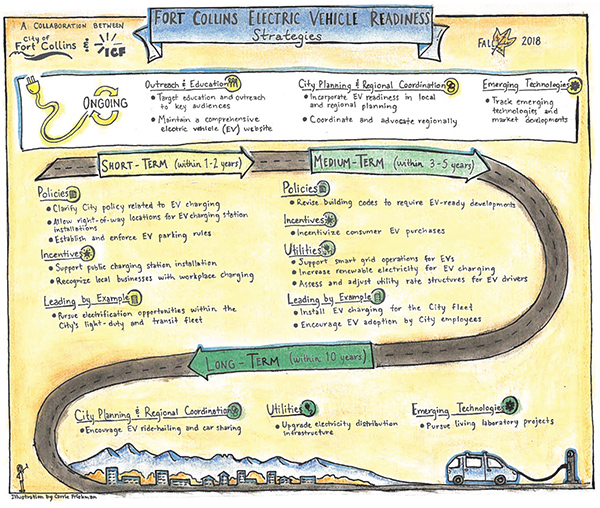 A COLLABORATION BETWEEN
City of
Fort Collins & ICF
FORT COLLINS ELECTRIC VEHICLE READINESS
Strategies
FALL 2018
ONGOING
Outreach & Education
• Target education and outreach
to key audiences
• Maintain a comprehensive
electric vehicle (EV) website
City Planning & Regional Coordination
• Incorporate EV readiness in local
and regional planning
• Coordinate and advocate regionally
Emerging Technologies
• Track emerging
technologies and
market developments
SHORT-TERM (within 1-2 years)
MEDIUM-TERM (within 3-5 years)
Policies
• Clarify City policy related to EV charging
• Allow right-of-way locations for EV charging station
installations
• Establish and enforce EV parking rules
Incentives
• Support public charging station installation
• Recognize local businesses with workplace charging
Leading by Example
• Pursue electrification opportunities within the
City's light-duty and transit fleet
Policies
• Revise building codes to require EV-ready developments
Incentives
• Incentivize consumer EV purchases
Utilities
• Support smart grid operations for EVs
• Increase renewable electricity for EV charging
• Assess and adjust utility rate structures for EV drivers
Leading by Example
• Install EV charging for the City fleet
• Encourage EV adoption by City employees
LONG-TERM (within 10 years)
City Planning & Regional Coordination
• Encourage EV ride-hailing and car sharing
Utilities
• Upgrade electricity distribution
infrastructure
Emerging Technologies
• Pursue living laboratory projects
Illustration by Carrie Friekman